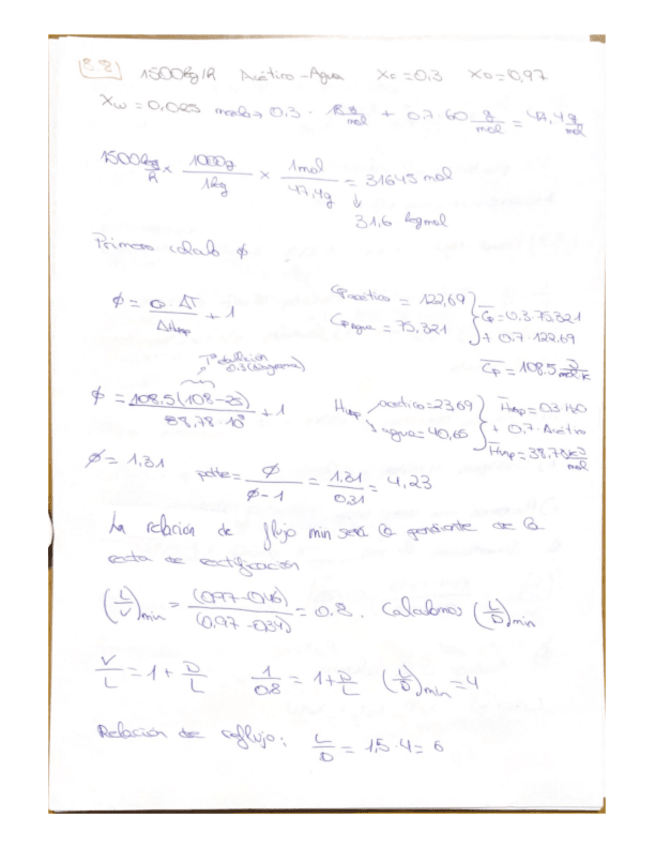 8.8 1500 kg/h Acético-Agua XF = 0,3 XD = 0,97
Xw = 0,025 0,3 · 18 g/mol + 0,7 · 60 g/mol = 47,4 g/mol
1500 kg/h × 1000g/1kg × 1mol/47,4g = 31645 mol
↓
31,6 kgmol
Primero calculo φ
φ = Cp · ΔT / ΔHvap + 1
Cp acético = 122,69
Cp agua = 75,321
C̄p = 0,3·75,321 + 0,7·122,69
C̄p = 108,5 J/mol K
Tª ebullición 0,3 (diagrama)
φ = 108,5 (108-25) / 38,78·10³ + 1
Hvap acético = 23,69
agua = 40,65
H̄vap = 0,3 H2O + 0,7 · Acético
H̄vap = 38,78 KJ/mol
φ = 1,31 pdte = φ / φ-1 = 1,31 / 0,31 = 4,23
La relación de flujo min será la pendiente de la
recta de rectificación
(L/V)min = (0,97-0,46) / (0,97-0,34) = 0,8. Calculamos (L/D)min
V/L = 1 + D/L 1/0,8 = 1 + D/L (L/D)min = 4
Relación de reflujo: L/D = 1,5 · 4 = 6